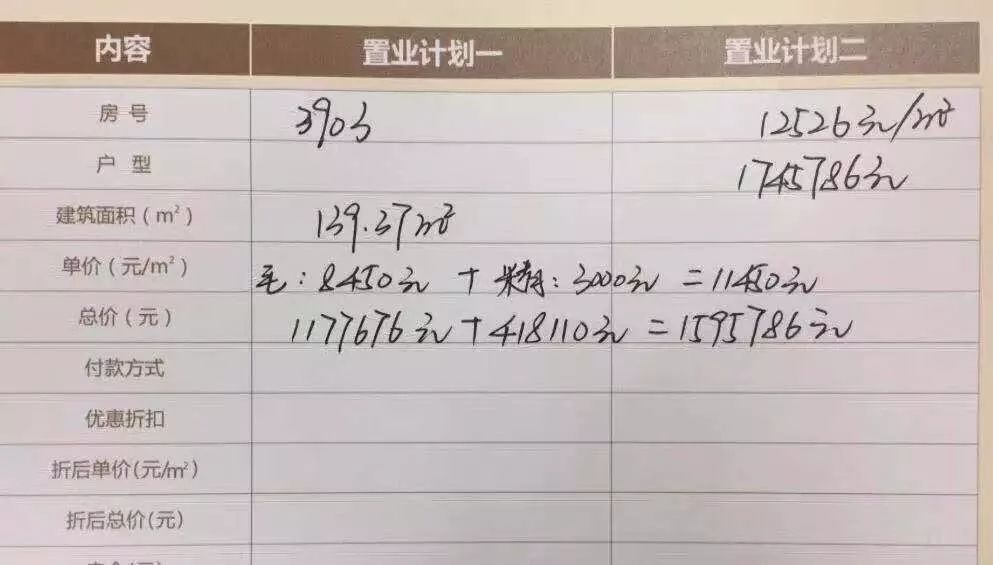 内容 置业计划一 置业计划二
房号 3903 12526元/m²
户型 1745786元
建筑面积(m²) 139.37m²
单价(元/m²) 毛:8450元 + 精:3000元 = 11450元
总价(元) 1177676元 + 418110元 = 1595786元
付款方式
优惠折扣
折后单价(元/m²)
折后总价(元)